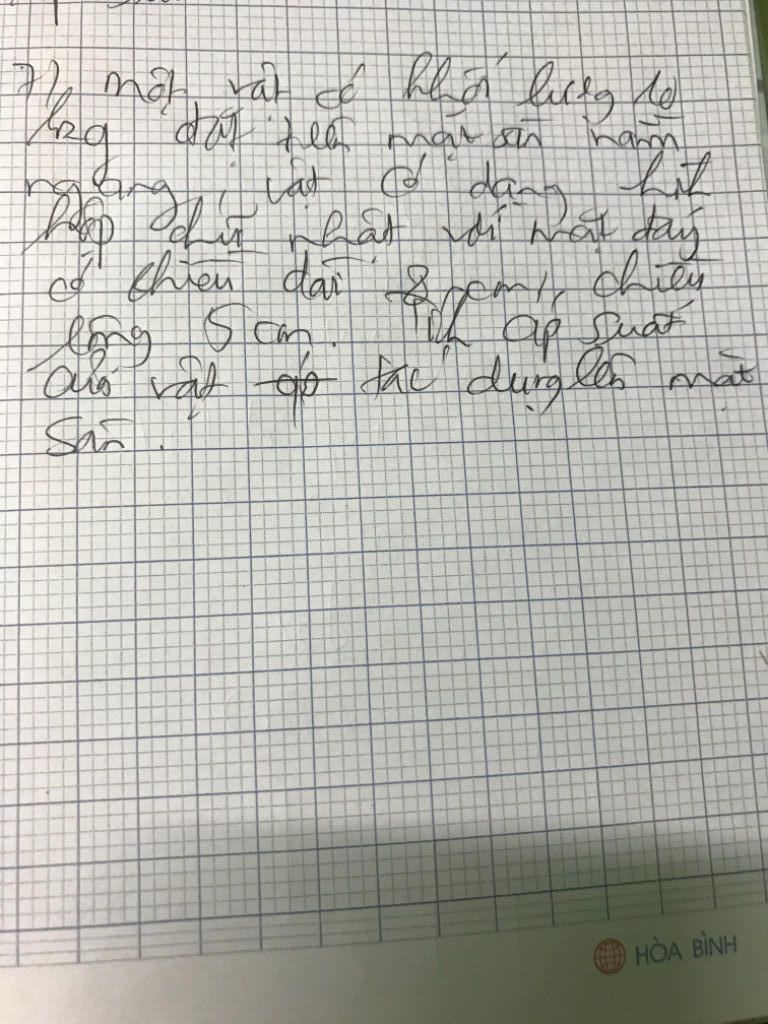 7) một vật có khối lượng 10
kg đặt trên mặt sàn nằm
ngang, vật có dạng hình
hộp chữ nhật với mặt đáy
có chiều dài 8 cm, chiều
rộng 5 cm. Tính áp suất
của vật tác dụng lên mặt
sàn.
HÒA BÌNH